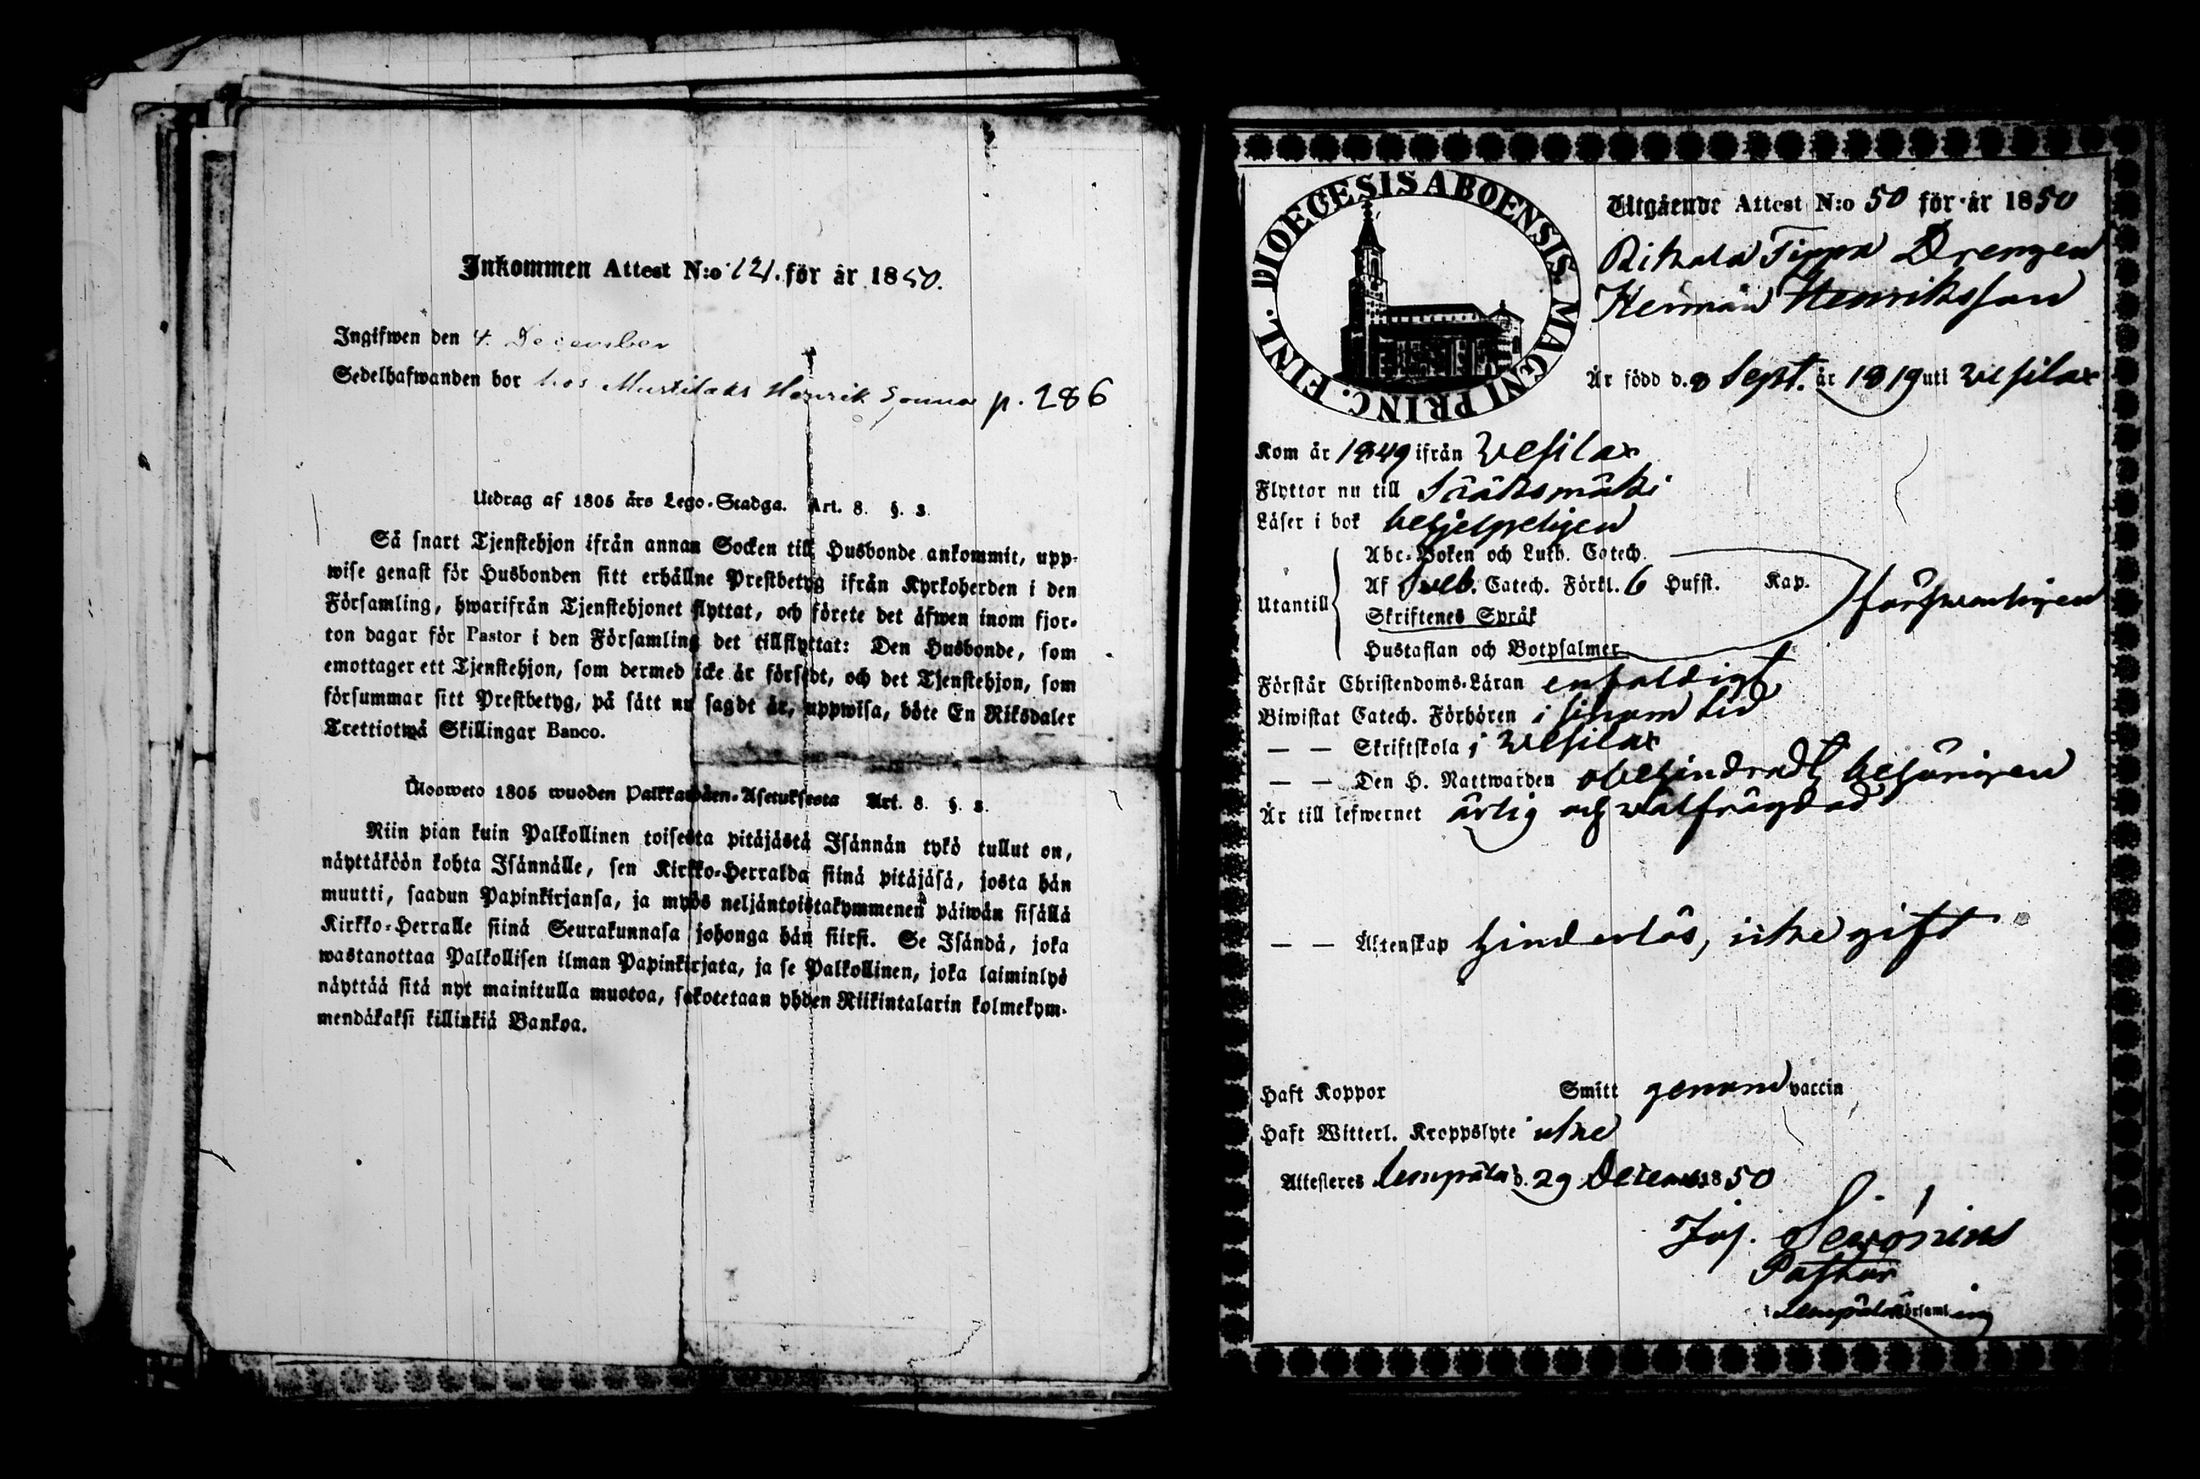 Inkommen Attest N:o 121. för år 1850.
Ingifwen den 4. December
Sedelhafwanden bor hos Henrik p. 286
Utdrag af 1805 års Lego-Stadga. Art. 8. §. 3.
Så snart Tjenstehjon ifrån annan Socken till Husbonde ankommit, upp-
wise genast för Husbonden sitt erhållne Prestbetyg ifrån Kyrkoherden i den
Församling, hwarifrån Tjenstehjonet flyttat, och förete det äfwen inom fjor-
ton dagar för Pastor i den Församling det tillflyttat: Den Husbonde, som
emottager ett Tjenstehjon, som dermed icke är försedt, och det Tjenstehjon, som
försummar sitt Prestbetyg, på sätt nu sagdt är, uppwisa, böte En Riksdaler
Trettiotwå Skillingar Banco.
Ulosweto 1805 wuoden Palkkawäen-Asetuksesta Art. 8. §. 3.
Niin pian kuin Palkollinen toisesta pitäjästä Isännän tykö tullut on,
näyttäköön kohta Isännälle, sen Kirkko-Herralda siinä pitäjäsä, josta hän
muutti, saadun Papinkirjansa, ja myös neljäntoistakymmenen päiwän sisällä
Kirkko-Herralle siinä Seurakunnasa johonga hän siirsi. Se Isändä, joka
wastanottaa Palkollisen ilman Papinkirjata, ja se Palkollinen, joka laiminlyö
näyttää sitä nyt mainitulla muotoa, sakotetaan yhden Riikintalarin kolmekym-
mendäkaksi killinkiä Bankoa.
DIOECESIS ABOENSIS. MAGNI PRINC. FINL.
Utgående Attest N:o 50 för år 1850
Rikala Tippa Drengen
Herman Henriksson
Är född d. 8 Sept. år 1819 uti Vesilax
Kom år 1849 ifrån Vesilax
Flyttar nu till Sääksmäki
Läser i bok behjelpeligen
Utantill
Abc-Boken och Luth. Catech.
Af Sveb. Catech. Förkl. 6 Hufst. Kap.
Skriftenes Språk
Hustaflan och Botpsalmer
försvarligen
Förstår Christendoms-Läran enfaldigt
Biwistat Catech. Förhören i sinom tid
— — Skriftskola i Vesilax
— — Den H. Nattwarden obehindradt behörigen
Är till lefwernet ärlig och välfrägdad
— — Äktenskap hinderlös, icke gift
Haft Koppor Smitt genom vaccin
Haft Witterl. Kroppslyte icke
Attesteres Lempäla d. 29 Decemb. 1850
Jos.
Pastor
i Lempäla Församling